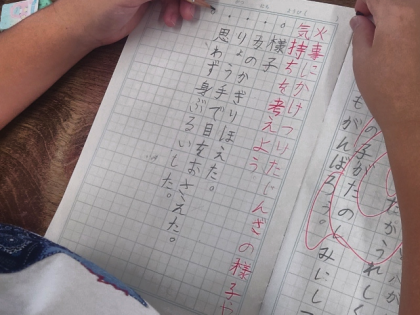 たがうれしく
の子がたのしみにして
もがんばろう。
火事にかけつけたじんざの様子や
気持ちを考えよう
。様子
・力のかぎりほえた。
・りょう手で目をおさえた。
・思わず身ぶるいした。